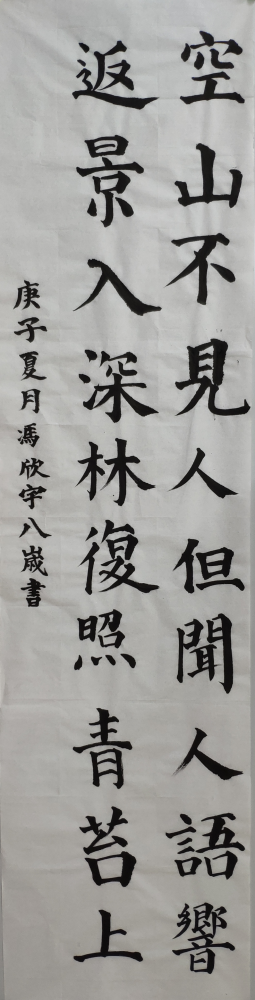 空山不見人但聞人語響
返景入深林復照青苔上
庚子夏月馮欣宇八歲書